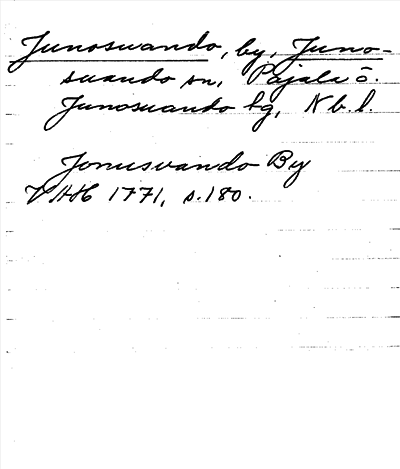 Junosuando, by, Juno-
suando sn, Pajala ö.
Junosuando hg, Nb. l.
Jonusvando By
VAH 1771, s. 180.